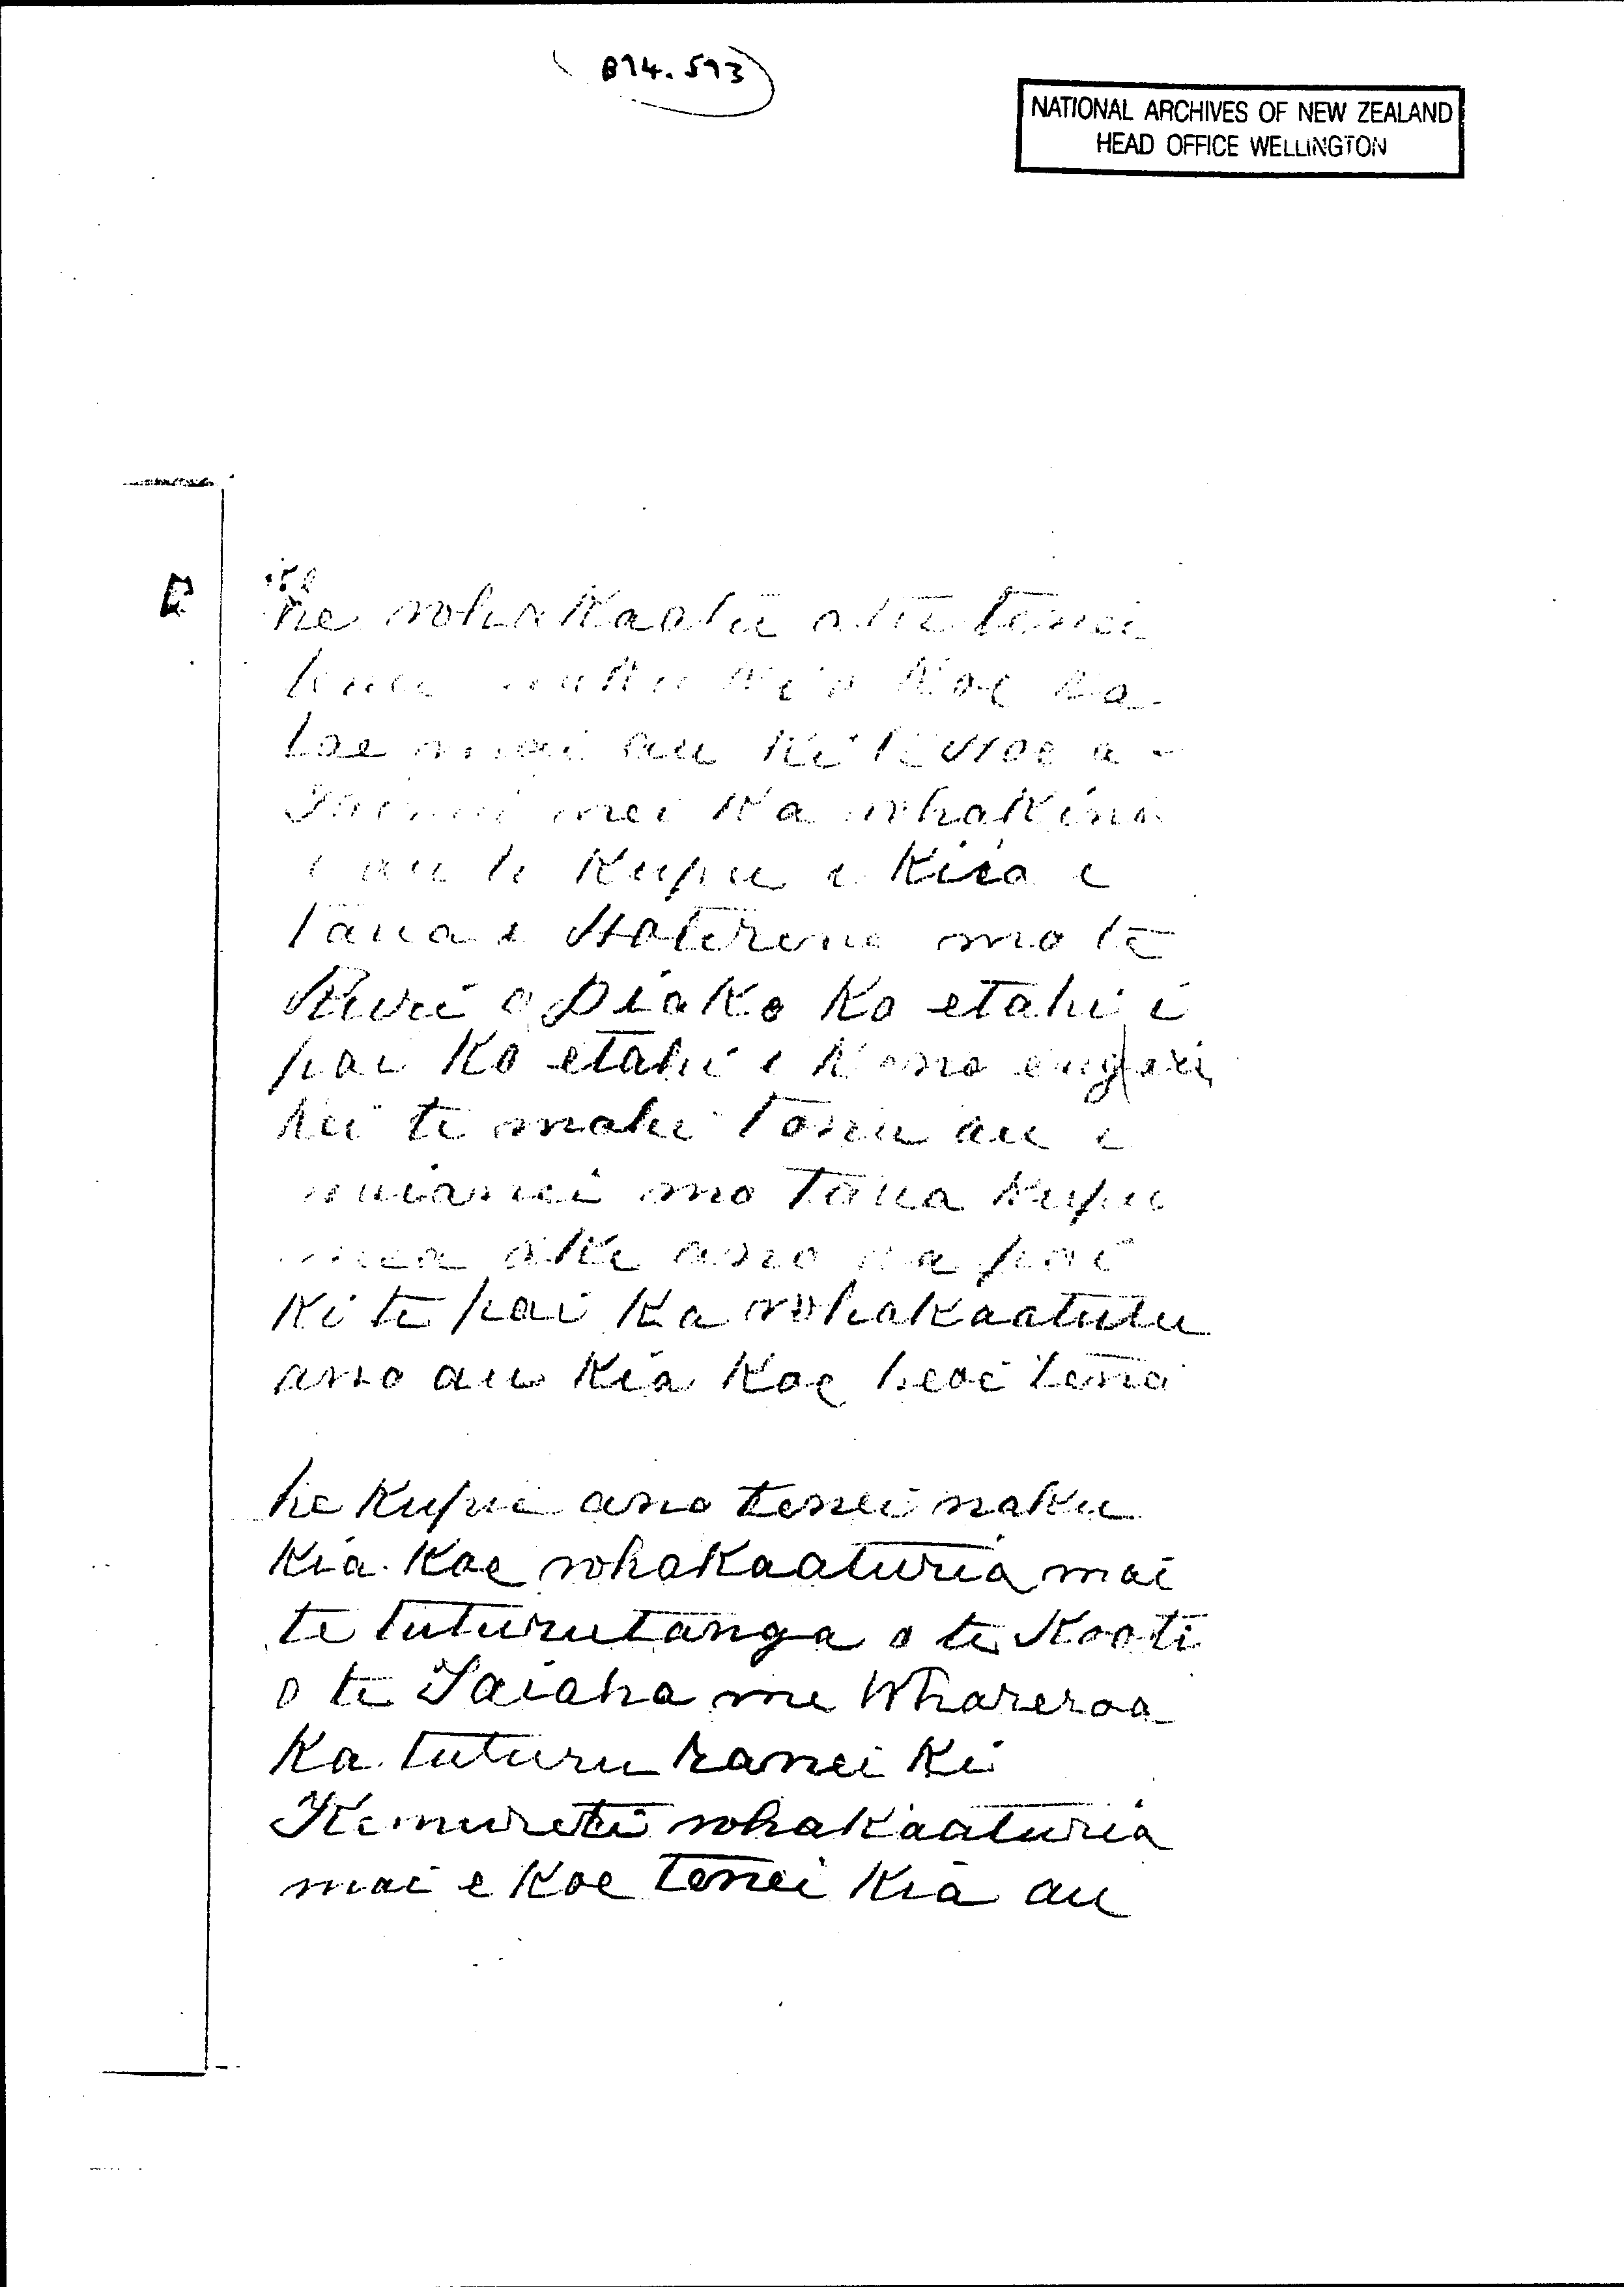 B74.593
NATIONAL ARCHIVES OF NEW ZEALAND
HEAD OFFICE WELLINGTON
he whakaatu atu tenei
tenei naku kia koe ka
tae mai au ki
nei ka whakina
e au te kupu i kiia e
taua i Hotereni mo te
Ruri o Piako ko etahi i
pai ko etahi i kino engari
kei te mahi tonu au i
naianei mo taua kupu
mea ake ano ka pai
ki te pai ka whakaatutu
ano au kia koe heoi tena
he kupu ano tenei naku
kia koe whakaaturia mai
te tuturutanga o te Kooti
o te Taiaha me Whareroa
ka tuturu ranei ki
Kemureti whakaaturia
mai e koe tenei kia au